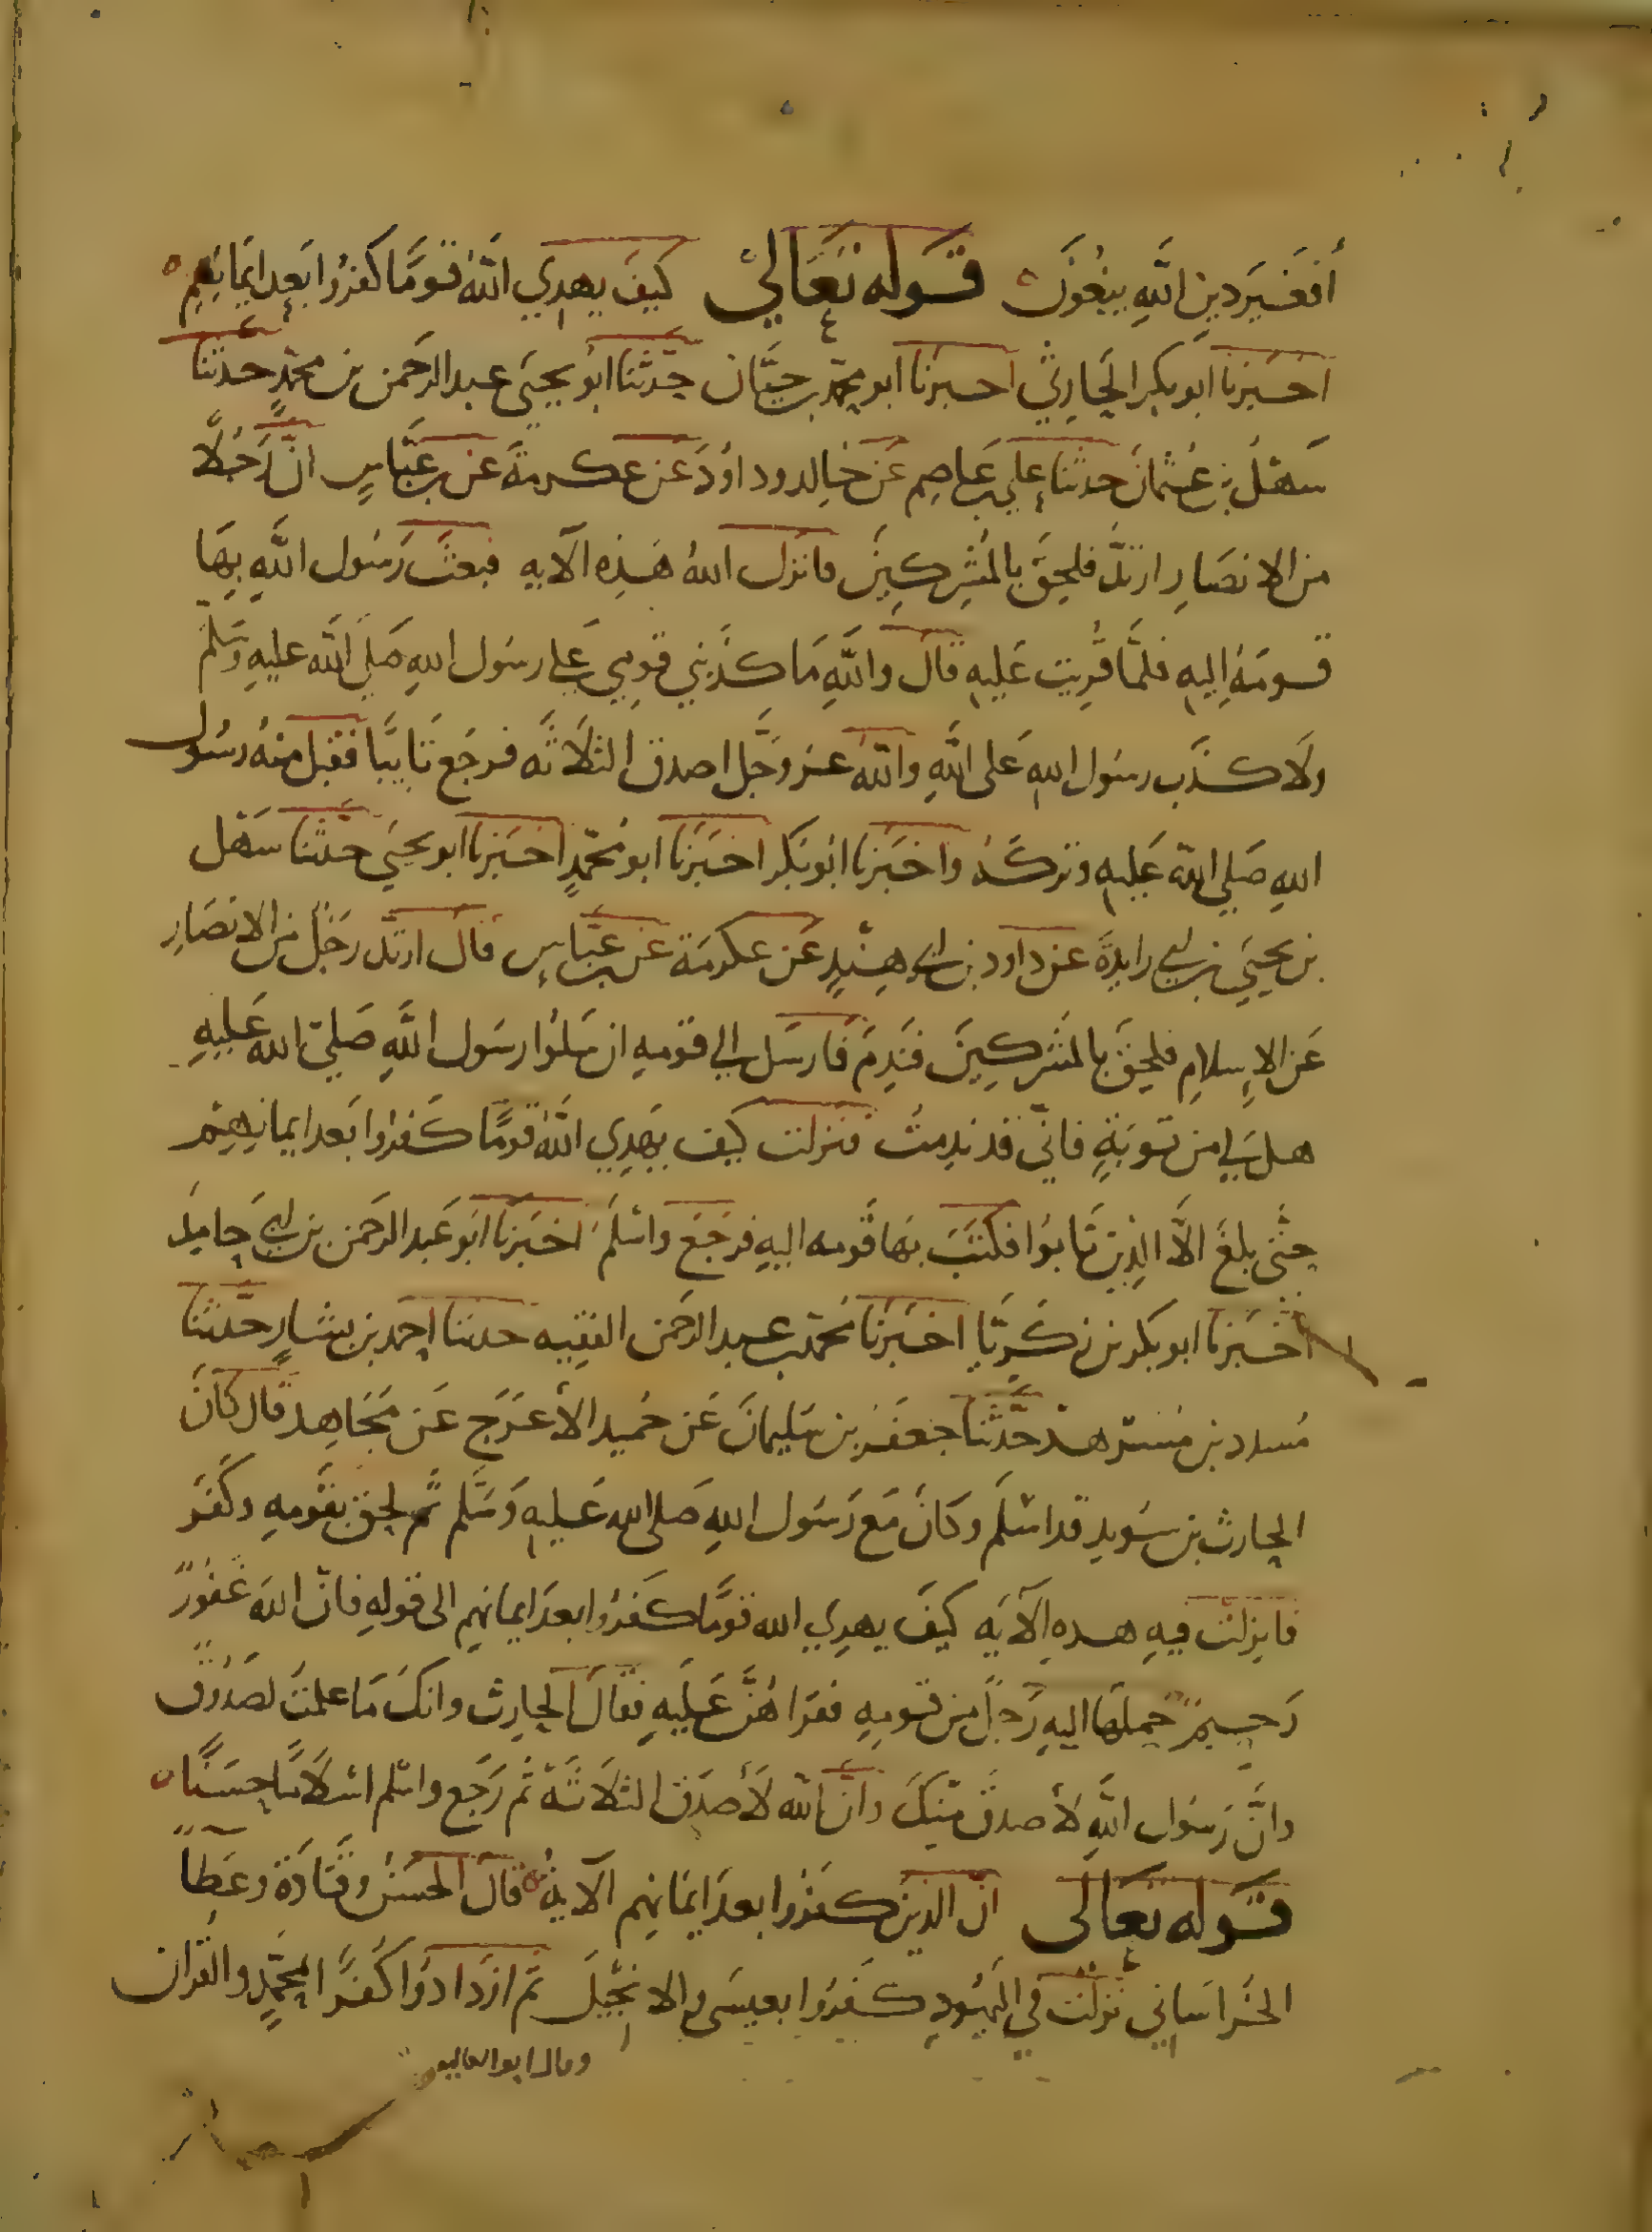 أفغير دين الله يبغون قوله تعالى كيف يهدي الله قوما كفروا بعد ايمانهم
اخبرنا ابو بكر الحارثي اخبرنا ابو محمد بن حيان حدثنا ابو يحيى عبد الرحمن بن محمد حدثنا
سهل بن عثمان حدثنا علي بن عاصم عن خالد وداود عن عكرمة عن بن عباس ان رجلا
من الانصار ارتد فلحق بالمشركين فانزل الله هذه الآيه فبعث رسول الله بها
قومه اليه فلما قريت عليه قال والله ما كذبني قومي على رسول الله صلى الله عليه وسلم
ولا كذب رسول الله على الله والله عز وجل اصدق الثلاثه فرجع تايبا فقبل منه رسول
الله صلي الله عليه وتركه واخبرنا ابو بكر اخبرنا ابو محمد اخبرنا ابو يحيي حدثنا سهل
بن يحيي بن ابي زايدة عن داود بن ابي هند عن عكرمة عن بن عباس قال ارتد رجل من الانصار
عن الاسلام فلحق بالمشركين فندم فارسل الي قومه ان سلوا رسول الله صلى الله عليه
هل لي من توبة فاني قد ندمت فنزلت كيف يهدي الله قوما كفروا بعد ايمانهم
حتى بلغ الا الذين تابوا فكتب بها قومه اليه فرجع واسلم اخبرنا ابو عبد الرحمن بن ابي حامد
اخبرنا ابو بكر بن زكريا اخبرنا محمد بن عبد الرحمن الفقيه حدثنا احمد بن بشار حدثنا
مسدد بن مسرهد حدثنا جعفر بن سليمان عن حميد الأعرج عن مجاهد قال كان
الحارث بن سويد قد اسلم وكان مع رسول الله صلى الله عليه وسلم ثم لحق بقومه وكفر
فانزلت فيه هذه الآيه كيف يهدي الله قوما كفروا بعد ايمانهم الى قوله فان الله غفور
رحيم فحملها اليه رجل من قومه فقراهن عليه فقال الحارث وانك ما علمت لصدوق
وان رسول الله لأصدق منك وان الله لأصدق الثلاثة ثم رجع واسلم اسلاما حسنا
قوله تعالى ان الذين كفروا بعد ايمانهم الآية قال الحسن وقتادة وعطا
الخراساني نزلت في اليهود كفروا بعيسى والانجيل ثم ازدادوا كفرا بمحمد والقران
وقال ابو العاليه